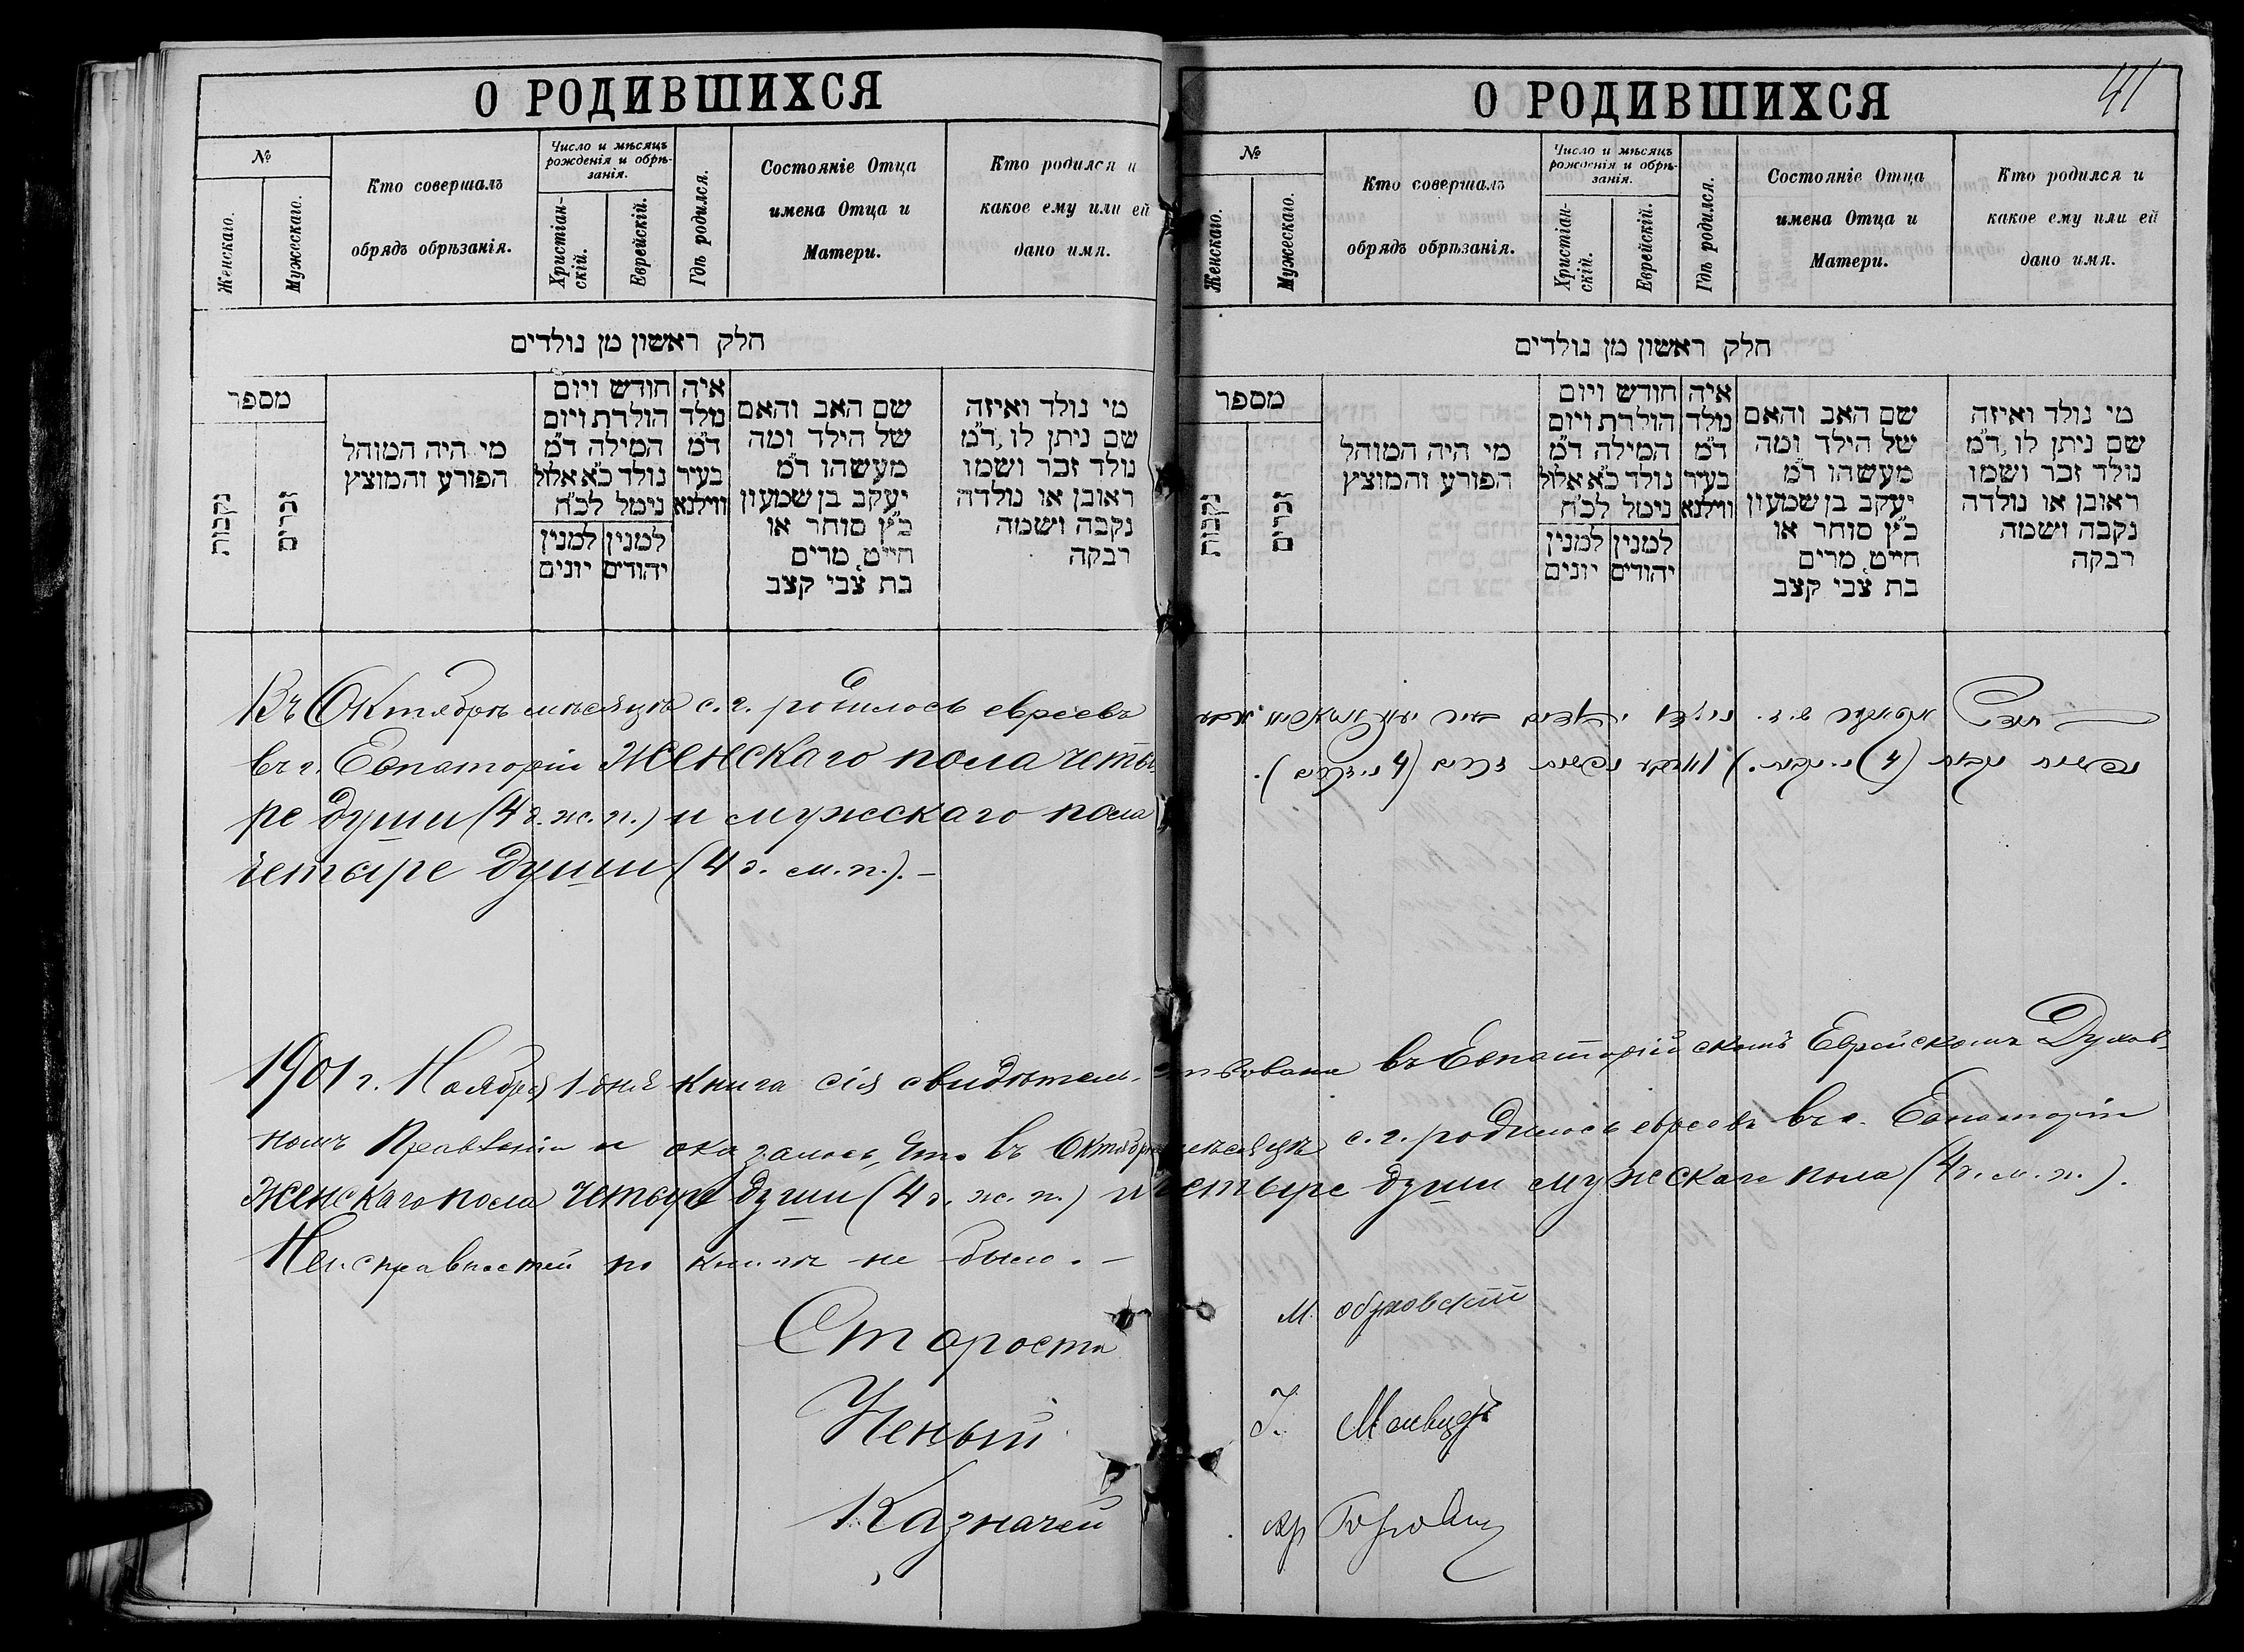 О РОДИВШИХСЯ
№
Женскаго.
Мужескаго.
Кто совершалъ
обрядъ обрѣзанія.
Число и мѣсяцъ
рожденія и обрѣ-
занія.
Христіан-
скій.
Еврейскій.
Гдѣ родился.
Состояніе Отца
имена Отца и
Матери.
Кто родился и
какое ему или ей
дано имя.
חלק ראשון מן נולדים
מספר
נקבות
זכרים
מי היה המוהל
הפורע והמוצץ
חודש ויום
הולדת ויום
המילה ד״מ
נולד כ״א אלול
נימל לכ״ח
למנין יהודים
למנין יונים
איה
נולד
ד״מ
בעיר
ווילנא
שם האב והאם
של הילד ומה
מעשהו ד״מ
יעקב בן שמעון
כ״ץ סוחר או
חייט, מרים
בת צבי קצב
מי נולד ואיזה
שם ניתן לו, ד״מ
נולד זכר ושמו
ראובן או נולדה
נקבה ושמה
רבקה
Въ Октябрѣ мѣсяцѣ с. г. родилось евреевъ
въ г. Евпаторіи женскаго пола четы
ре души (4 д. ж. п.) и мужскаго пола
четыре души (4 д. м. п.). –
О РОДИВШИХСЯ
41
№
Женскаго.
Мужескаго.
Кто совершалъ
обрядъ обрѣзанія.
Число и мѣсяцъ
рожденія и обрѣ-
занія.
Христіан-
скій.
Еврейскій.
Гдѣ родился.
Состояніе Отца
имена Отца и
Матери.
Кто родился и
какое ему или ей
дано имя.
חלק ראשון מן נולדים
מספר
נקבות
זכרים
מי היה המוהל
הפורע והמוצץ
חודש ויום
הולדת ויום
המילה ד״מ
נולד כ״א אלול
נימל לכ״ח
למנין יהודים
למנין יונים
איה
נולד
ד״מ
בעיר
ווילנא
שם האב והאם
של הילד ומה
מעשהו ד״מ
יעקב בן שמעון
כ״ץ סוחר או
חייט, מרים
בת צבי קצב
מי נולד ואיזה
שם ניתן לו, ד״מ
נולד זכר ושמו
ראובן או נולדה
נקבה ושמה
רבקה
1901 г. Ноября 1 дня книга сія свидѣтель- ствована въ Евпаторійскомъ Еврейскомъ Духов-
номъ Правленіи и оказалось, что въ Октябрѣ мѣсяцѣ с. г. родилось евреевъ въ г. Евпаторіи
женскаго пола четыре души (4 д. ж. п.) и четыре души мужскаго пола (4 д. м. п.).
Неисправностей по книгѣ не было. –
Староста М. Обуховскій
Ученый
Казначей